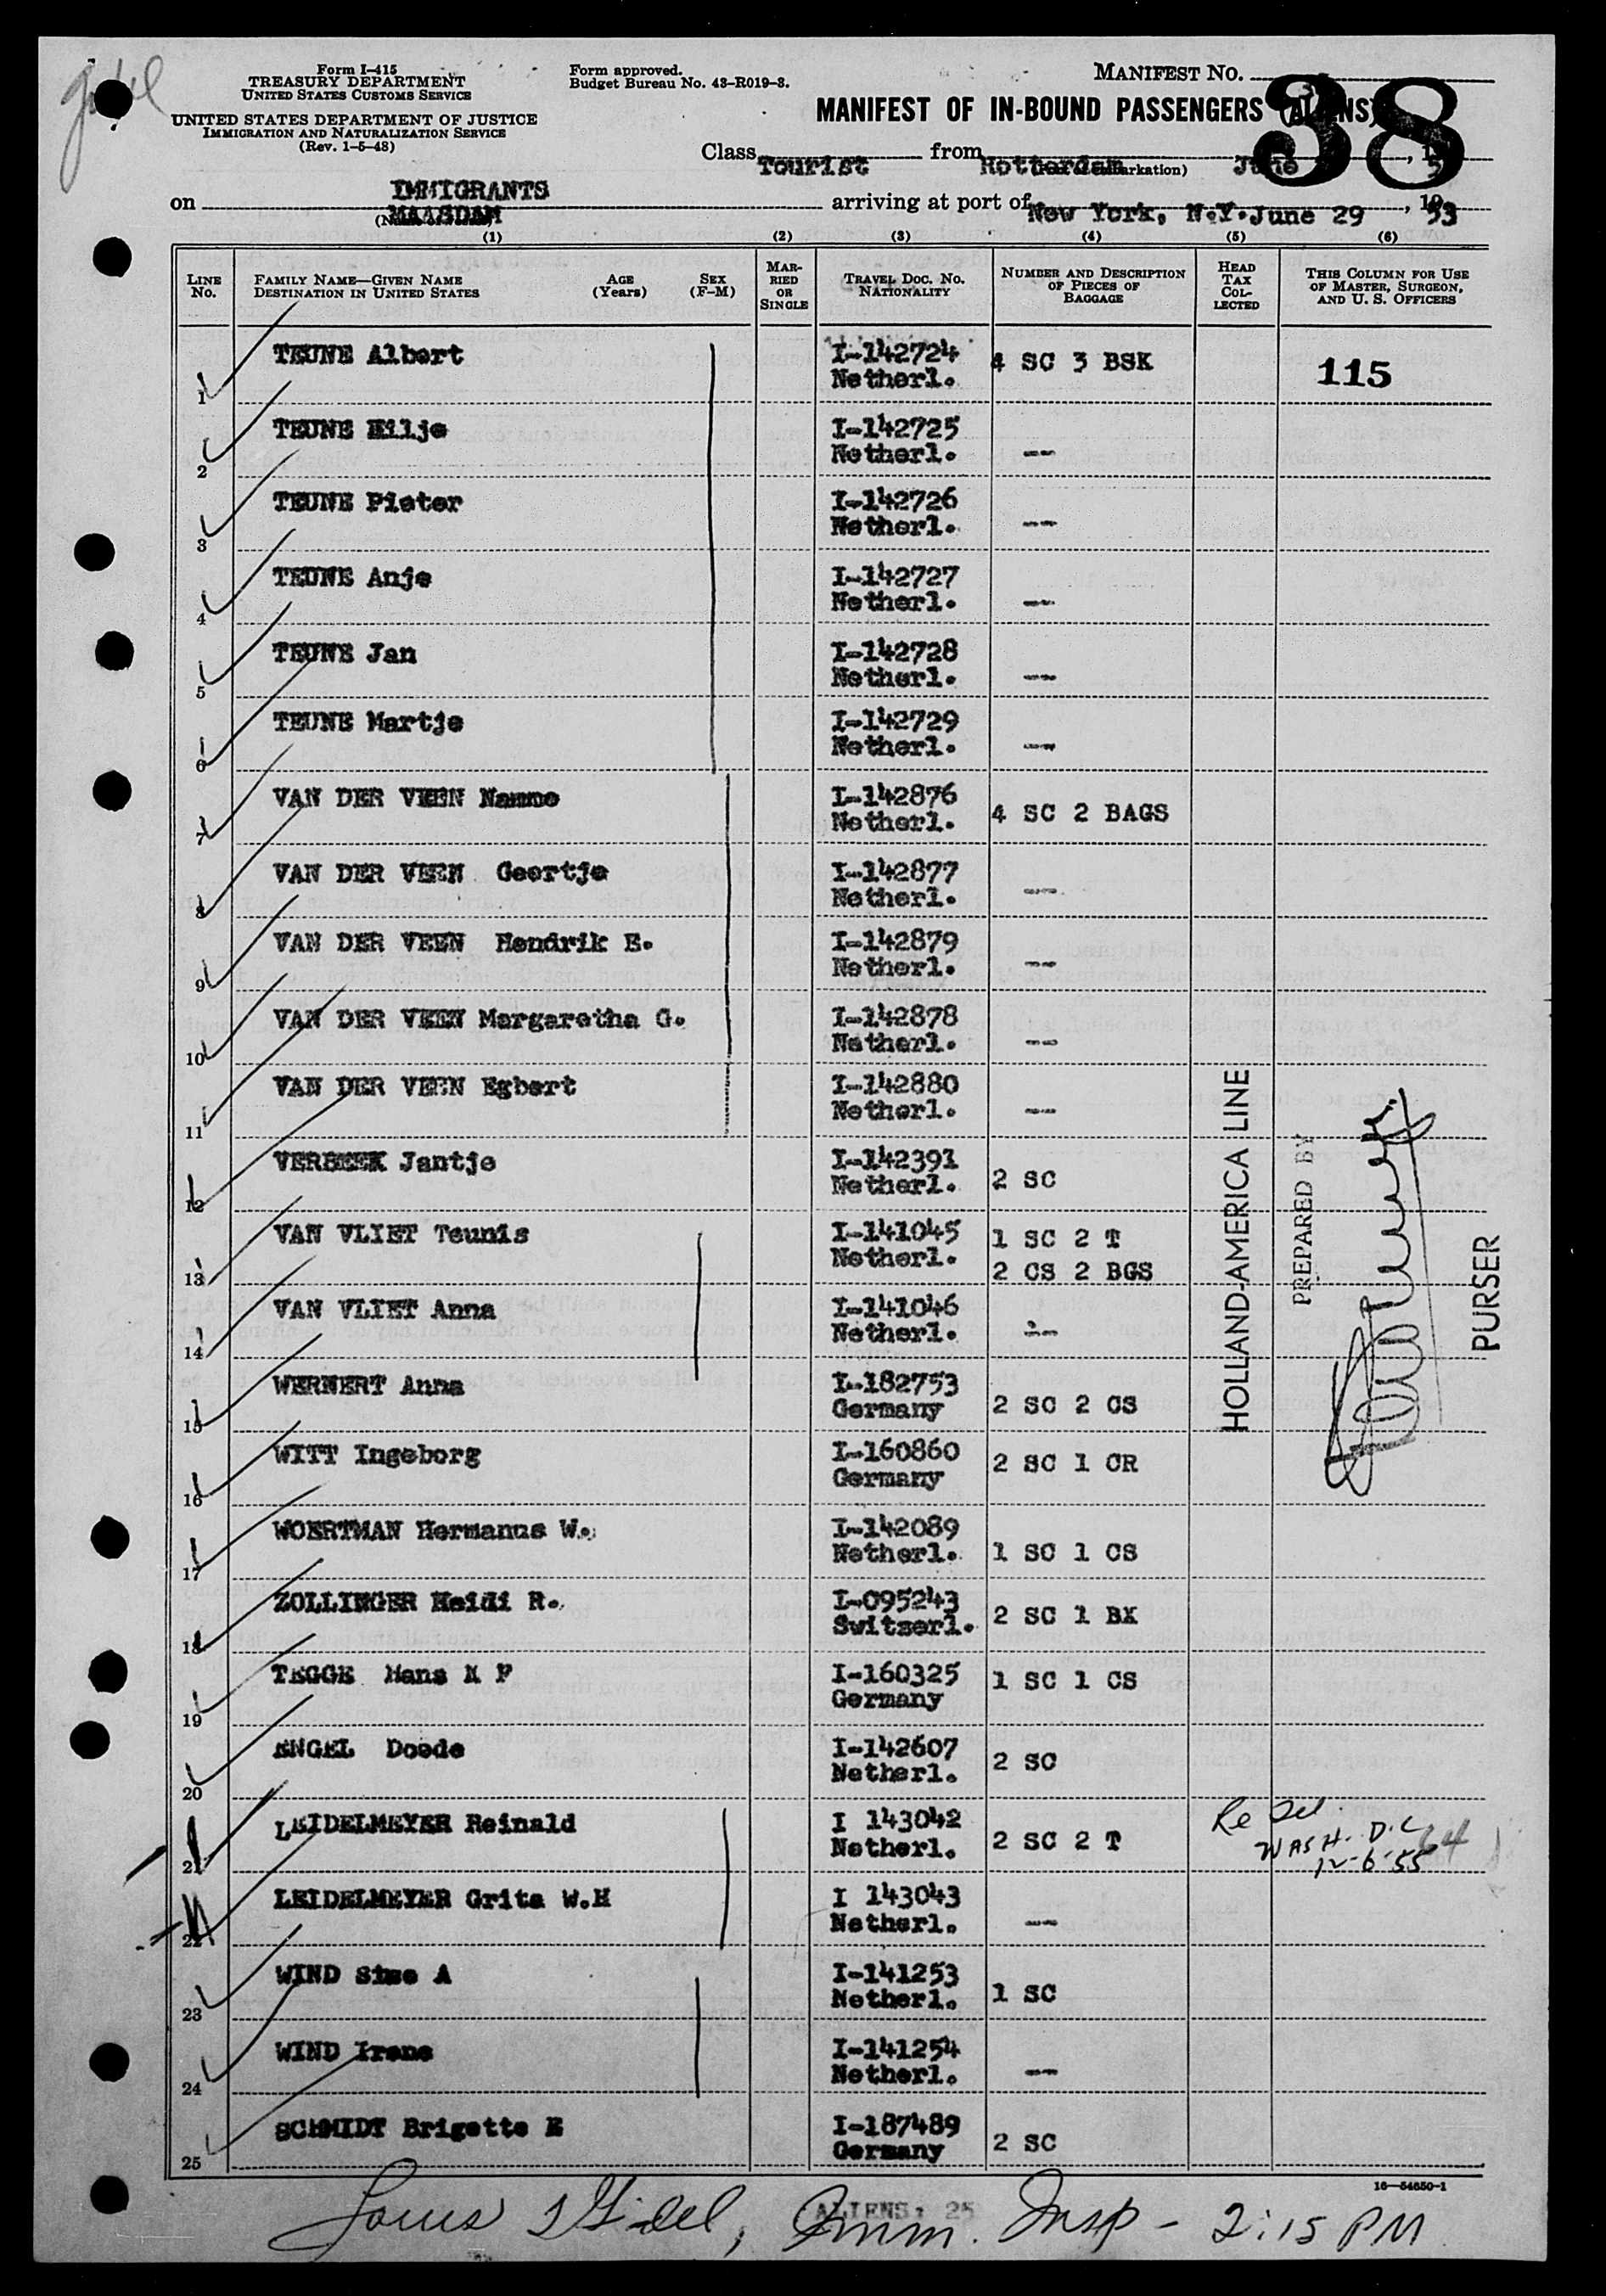 Form I-415
TREASURY DEPARTMENT
UNITED STATES CUSTOMS SERVICE
UNITED STATES DEPARTMENT OF JUSTICE
IMMIGRATION AND NATURALIZATION SERVICE
(Rev. 1-5-48)
Form approved.
Budget Bureau No. 43-R019-3.
MANIFEST NO.
38
MANIFEST OF IN-BOUND PASSENGERS (ALIENS)
Class Tourist from Rotterdam June
on IMMIGRANTS
MAASDAM
arriving at port of New York, N.Y. June 29, 1953
(1) (2) (3) (4) (5) (6)
LINE No. FAMILY NAME—GIVEN NAME DESTINATION IN UNITED STATES AGE (Years) SEX (F-M) MARRIED OR SINGLE TRAVEL DOC. NO. NATIONALITY NUMBER AND DESCRIPTION OF PIECES OF BAGGAGE HEAD TAX COLLECTED THIS COLUMN FOR USE OF MASTER, SURGEON, AND U. S. OFFICERS
1 TEUNE Albert I-142724 Netherl. 4 SC 3 BSK 115
2 TEUNE Hilje I-142725 Netherl. --
3 TEUNE Pieter I-142726 Netherl. --
4 TEUNE Anje I-142727 Netherl. --
5 TEUNE Jan I-142728 Netherl. --
6 TEUNE Martje I-142729 Netherl. --
7 VAN DER VEEN Nanno I-142876 Netherl. 4 SC 2 BAGS
8 VAN DER VEEN Geertje I-142877 Netherl. --
9 VAN DER VEEN Hendrik E. I-142879 Netherl. --
10 VAN DER VEEN Margaretha G. I-142878 Netherl. --
11 VAN DER VEEN Egbert I-142880 Netherl. --
12 VERBEEK Jantje I-142391 Netherl. 2 SC
13 VAN VLIET Teunis I-141045 Netherl. 1 SC 2 T
2 CS 2 BGS
14 VAN VLIET Anna I-141046 Netherl. --
15 WERNERT Anna I-182753 Germany 2 SC 2 CS
16 WITT Ingeborg I-160860 Germany 2 SC 1 CR
17 WOERTMAN Hermanus W. I-142089 Netherl. 1 SC 1 CS
18 ZOLLINGER Heidi R. I-095243 Switzerl. 2 SC 1 BX
19 TEGGE Hans K F I-160325 Germany 1 SC 1 CS
20 ENGEL Doede I-142607 Netherl. 2 SC
21 LEIDELMEYER Reinald I 143042 Netherl. 2 SC 2 T
22 LEIDELMEYER Grita W.H I 143043 Netherl. --
23 WIND Sime A I-141253 Netherl. 1 SC
24 WIND Irene I-141254 Netherl. --
25 SCHMIDT Brigette E I-187489 Germany 2 SC
HOLLAND-AMERICA LINE
PREPARED BY
PURSER
WASH. D.C.
12-6-55
16—54650-1
ALIENS: 25
Imm. Insp - 2:15 PM